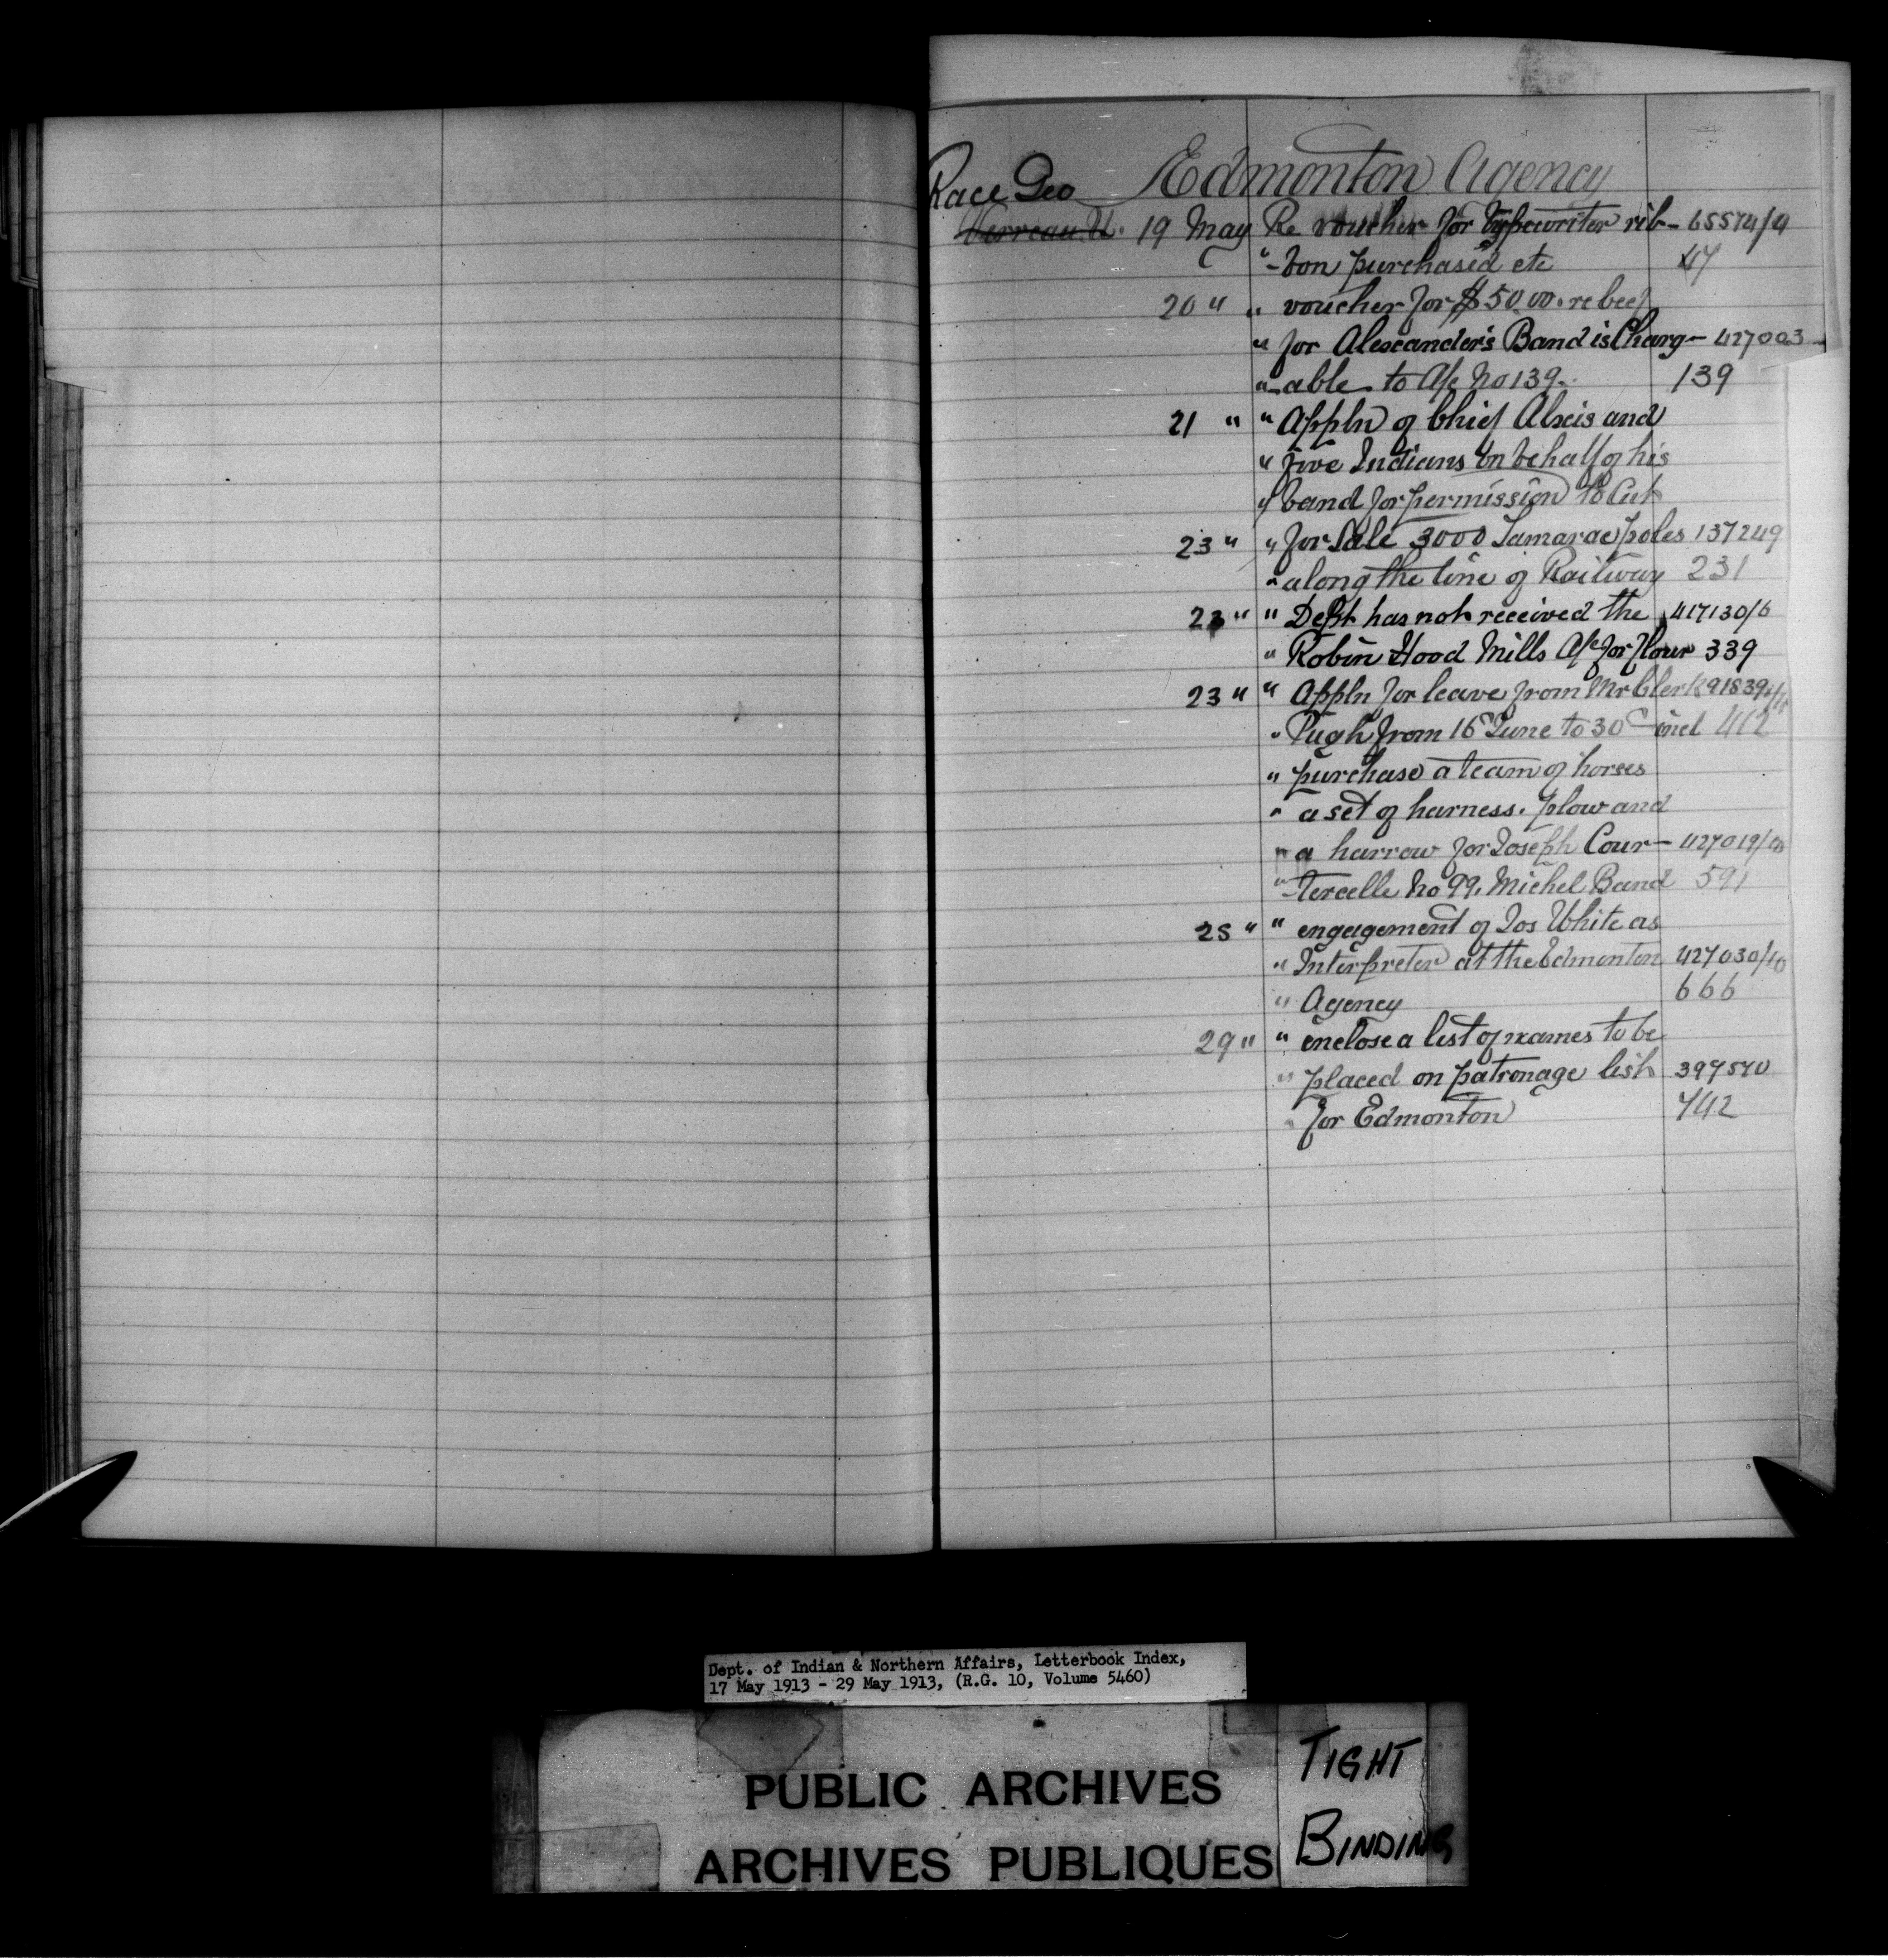 Edmonton Agency
Race Geo
Verreau U. 19 May Re voucher for typewriter rib- 65574/9
"-bon purchased etc 47
20 " " voucher for $50.00. re beef
" for Alexander's Band is Charg- 427003
"-able to A/c No 139. 139
21 " " Appln of Chief Alexis and
" five Indians on behalf of his
" band for permission to Cut
23 " " for Sale 3000 Tamarac poles 137249
" along the line of Railway 231
23 " " Dept has not received the 417130/6
" Robin Hood Mills A/c for flour 339
23 " " Appln for leave from Mr Clerk 91839
" Pugh from 16 June to 30 - incl 412
" purchase a team of horses
" a set of harness. plow and
" a harrow for Joseph Cour- 427019/
"-tercelle No 99, Michel Band 591
25 " " engagement of Jos White as
" Interpreter at the Edmonton 427030/10
" Agency 666
29 " " enclose a list of names to be
" placed on patronage list 397570
" for Edmonton 742
Dept. of Indian & Northern Affairs, Letterbook Index,
17 May 1913 - 29 May 1913, (R.G. 10, Volume 5460)
PUBLIC ARCHIVES
ARCHIVES PUBLIQUES
TIGHT
BINDING